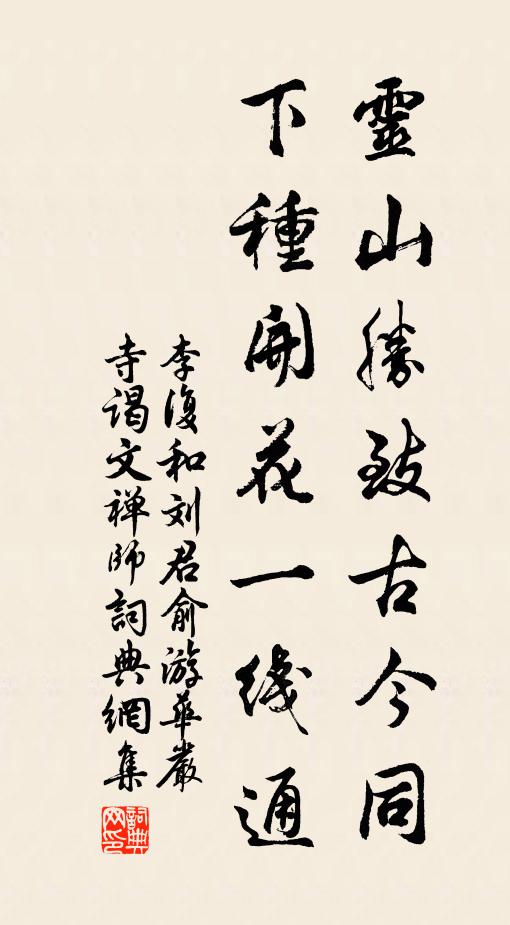 靈山勝致古今同
下種開花一线通
李復和刘君俞游華嚴
寺谒文禅師詞典網集
詞典网印